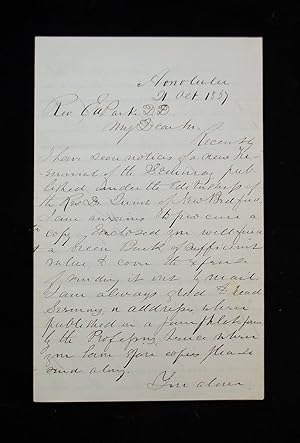 Honolulu
21 Oct. 1887
Rev. E A Park D.D
My Dear Sir.
Recently
I have seen notices of a new Tri-
ennial of the Seminary pub-
lished under the Editorship of
the Rev. of New Bedford
I am anxious to procure a
copy. Enclosed you will find
a Green Back of sufficient
value to cover the expense
of sending it out by mail.
I am always glad to read
Sermons or addresses when
published in a pamphlet form
by the Professors hence when
you have spare copies please
send along.
Yours